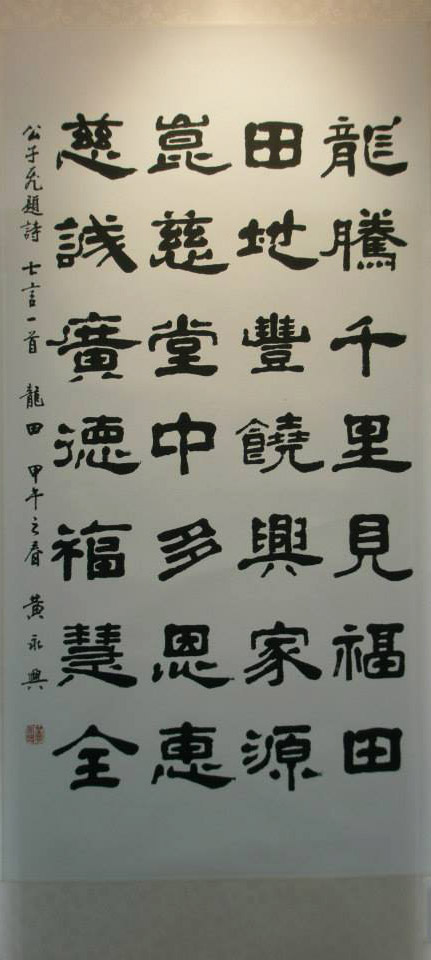 龍騰千里見福田
田地豐饒興家源
崑慈堂中多恩惠
慈誠廣德福慧全
公子允題詩 士言一首 龍田 甲午之春 黃永興